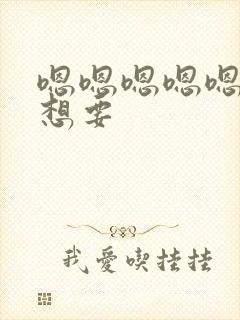 嗯嗯嗯嗯嗯
想要
我爱喫挂挂